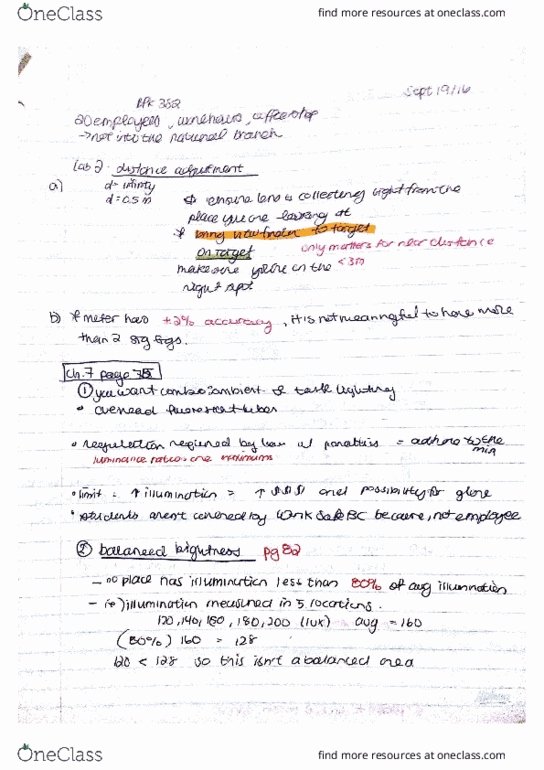 OneClass
find more resources at oneclass.com
Sept 19/16
BPK 382
20 employees, warehouse, coffee shop
→ not into the national branch
Lab 2 distance adjustment
a) d = infinity
d = 0.5 m
ensure lens is collecting light from the
place you are looking at
* bring viewfinder to target
on target
only matters for near distance
< 3m
make sure you're on the
right spot
b) if meter has ±2% accuracy, it is not meaningful to have more
than 2 sig figs.
Ch.7 page
① you want combo ambient & task lighting
• overhead fluorescent tubes
• regulation required by law w/ penalties = adhere to the
min
luminance ratios are maximums
• limit: ↑ illumination = ↑ $$$ and possibility for glare
• students aren't covered by WorkSafeBC because, not employee
② balanced brightness pg 82
- no place has illumination less than 80% of avg illumination
- illumination measured in 5 locations.
120, 140, 160, 180, 200 (lux) avg = 160
(80%) 160 = 128
120 < 128 so this isn't a balanced area
OneClass
find more resources at oneclass.com